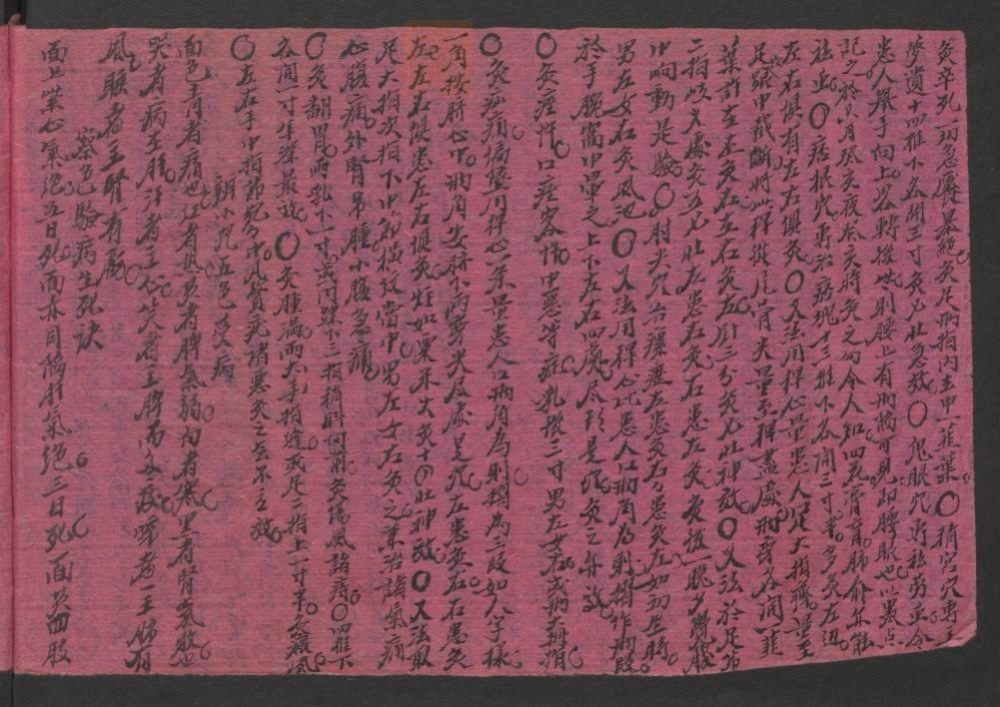 灸卒死一切急魘暴絕灸足兩指內去甲一韮葉〇精宮穴專主
夢遺十四椎下各開三寸灸七壯急效〇鬼眼穴專祛勞虫令
患人舉手向上畧轉後些則腰上有兩陷可見即腰眼也以墨点
記之於六月癸亥夜亥時灸之勿令人知四花膏肓肺俞亦能
祛虫〇痞根穴專治痞塊十三椎下各開三寸半多灸左边
左右俱有左右俱灸〇又法用稈心量患人足大指齊量至
足跟中截斷將此稈從尾骨尖量至稈盡處兩旁各開一韮
葉許在左灸右在右灸左針三分灸七壯神效〇又法於足第
二指岐义處灸五七壯左患灸右右患灸左灸後一晚夕覺腹
中响動是驗〇肘尖穴治瘰癧左患灸右右患灸左如初生時
男左女右灸風池〇又法用稈心比患人口兩角為則摺作兩段
於手腕窩中量之上下左右四處尽頭是穴灸之亦效
〇灸疰忤口疰客忤中惡等症乳後三寸男左女右或兩大拇指
〇灸疝痛偏墜用稈心一条量患人口兩角為則摺為三段如人字樣
一角按臍心中兩角安臍下兩旁尖尽處是穴左患灸右右患灸
左左右俱患左右俱灸炷如粟米大灸十四壯神效〇又法取
足大指次指下中節橫紋當中男左女右灸之兼治諸氣痛
心腹痛外腎吊腫小腹急痛
〇灸翻胃兩乳下一寸或內踝下三指稍斜向前灸腸風諸痔〇四椎下
各開一寸年深最效〇灸腫滿兩大手指逢或足二指上一寸半灸癜風
〇左右手中指節宛宛中凡贅疣諸患灸之無不立效
觀小兒五色受病
面色青者痛也紅者熱黃者脾氣弱白者寒黑者腎氣敗也
哭者病在肝汗者主心笑者主脾而多痰啼者主肺有
風睡者主腎有虧
察色驗病生死訣
面上紫心氣絕五日死面赤目陷肝氣絕三日死面黃四肢